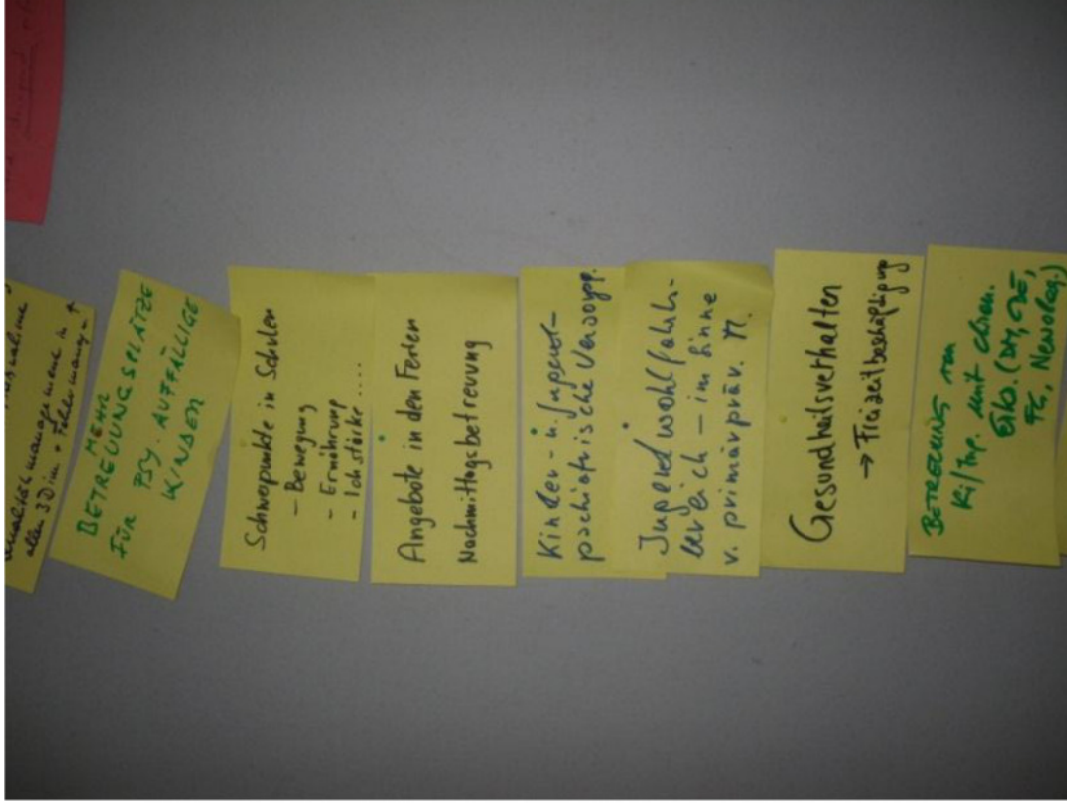 allen 3 Dim. + Fehlermanag. ↑
MEHR
BETREUUNGSPLÄTZE
FÜR PSY. AUFFÄLLIGE
KINDER
Schwerpunkte in Schulen
- Bewegung
- Ernährung
- Ichstärke ....
Angebote in den Ferien
Nachmittagsbetreuung
Kinder- u. Jugend-
psychiatrische Versorgg.
Jugendwohlfahrts-
bereich - im Sinne
v. primärpräv. M.
Gesundheitsverhalten
→ Freizeitbeschäftigung
BETREUUNG von
Ki/Jug. mit chron.
Erkr. (DM, CED,
FC, Neurolog.)